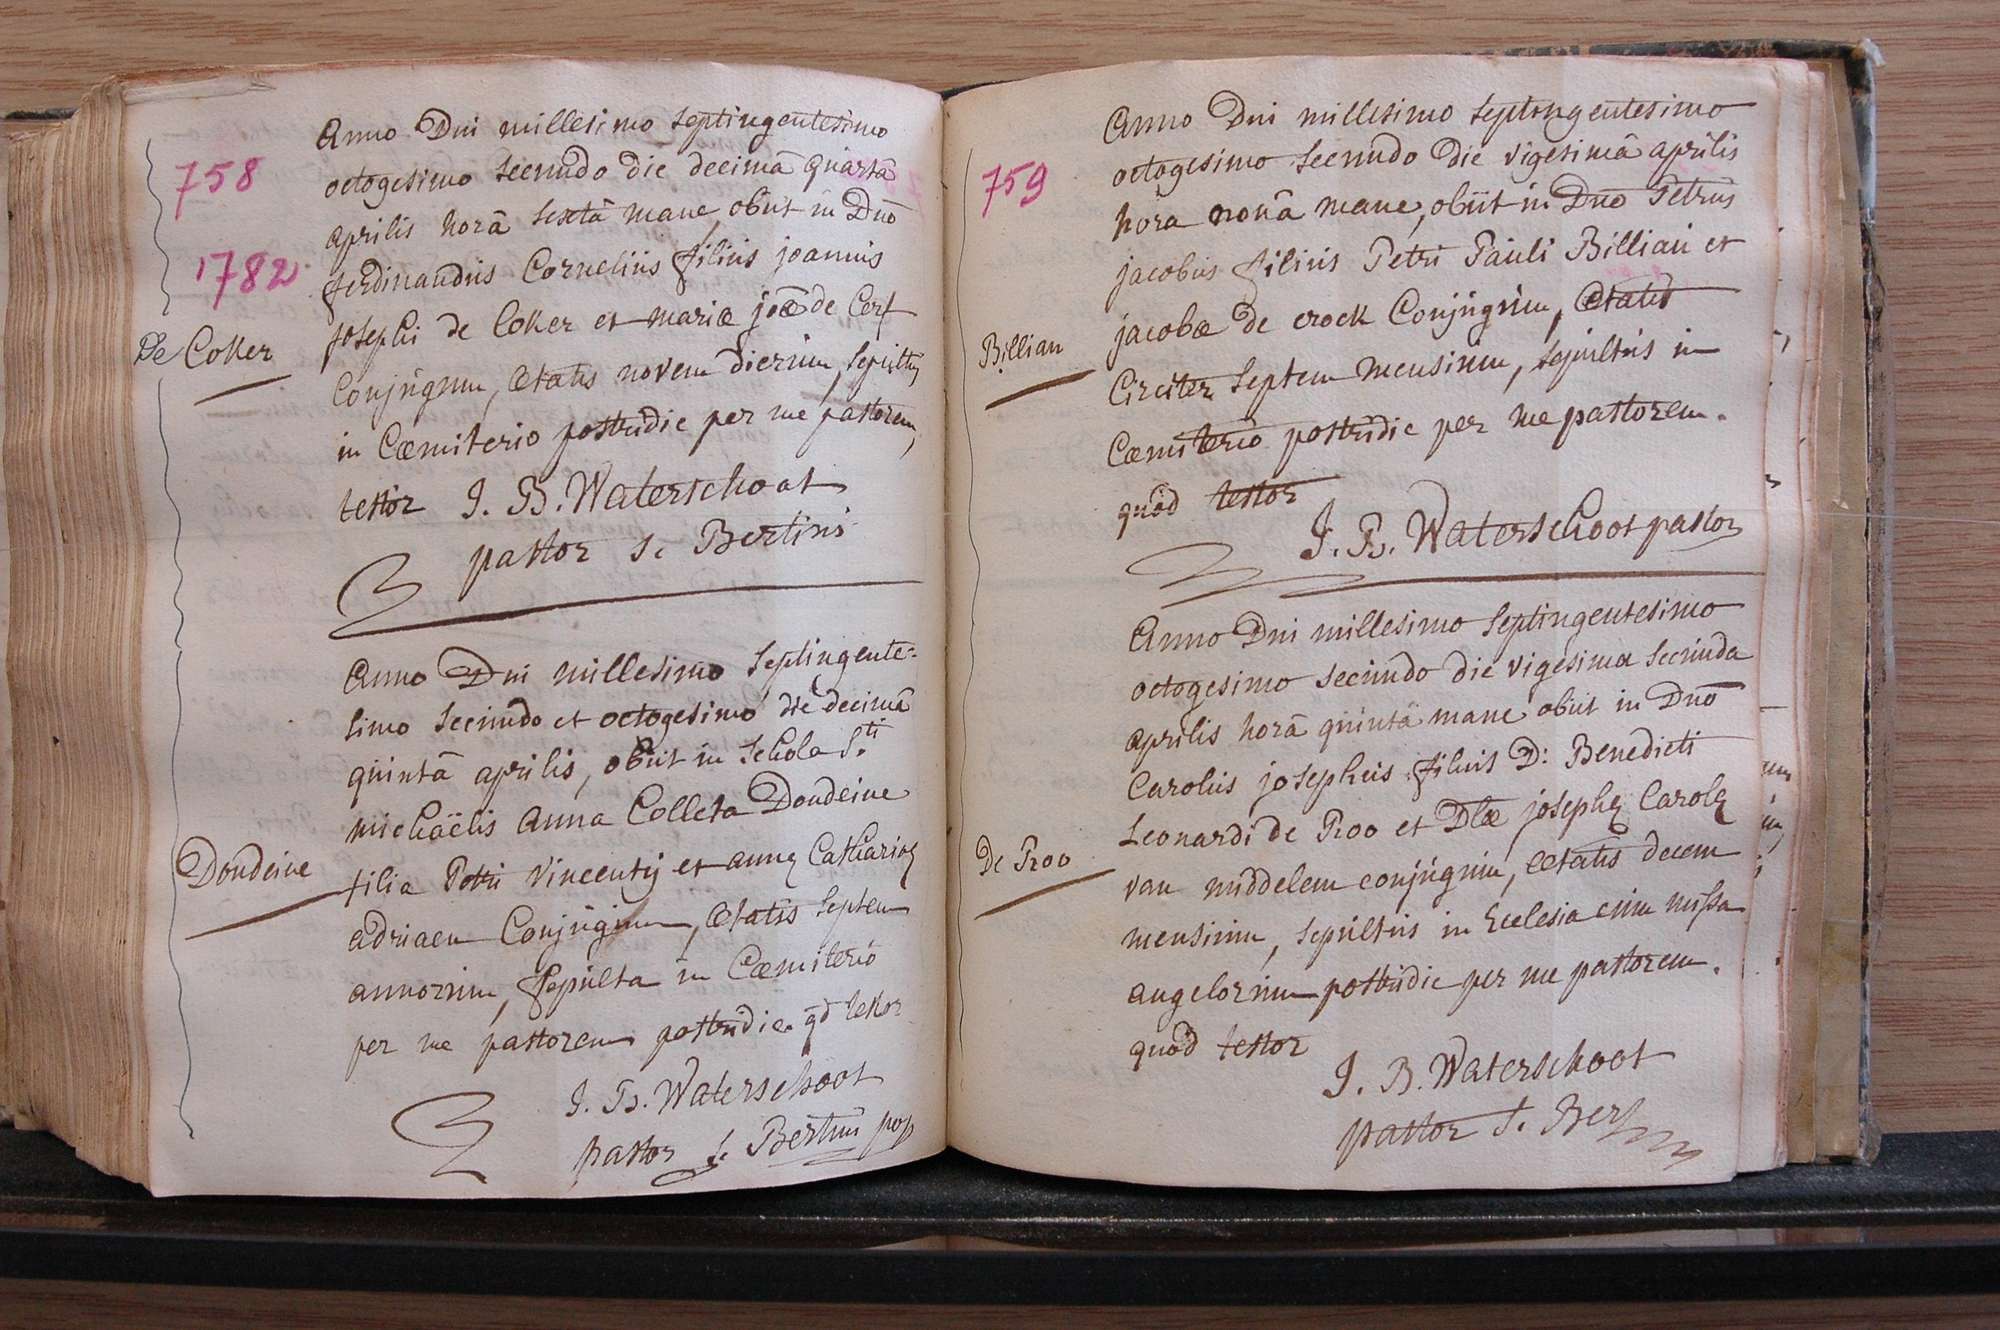 758
1782
De Coker
Anno Dni millesimo septingentesimo
octogesimo secundo die decimâ quartâ
aprilis horâ sextâ mane obiit in Dno
ferdinandus Cornelius filius joannis
josephi de Coker et mariæ joæ de Cerf
Conjugum, ætatis novem dierum, sepultus
in Cœmiterio postridie per me pastorem,
testor J. B. Waterschoot
pastor S. Bertini
Doudeine
Anno Dni millesimo septingente=
simo secundo et octogesimo die decimâ
quintâ aprilis, obiit in schola S.ti
michaëlis anna Colleta Doudeine
filia Petri Vincentij et annę Catharinę
adriaen Conjugum, ætatis septem
annorum, sepulta in Cœmiterio
per me pastorem postridie qd testor
J. B. Waterschoot
pastor S. Bertini pop
759
Billiau
Anno Dni millesimo septingentesimo
octogesimo secundo die vigesimâ aprilis
hora nonâ mane, obiit in Dno Petrus
jacobus filius Petri Pauli Billiau et
jacobæ de crock Conjugum, ætatis
Circiter septem mensium, sepultus in
Cœmiterio postridie per me pastorem.
quod testor
J. B. Waterschoot pastor
De Roo
Anno Dni millesimo septingentesimo
octogesimo secundo die vigesima secunda
aprilis horâ quintâ mane obiit in Dno
Carolus josephus filius D: Benedicti
Leonardi de Roo et Dlæ josephę Carolę
van middelem conjugum, ætatis decem
mensium, sepultus in Ecclesia cum missa
angelorum postridie per me pastorem.
quod testor
J. B. Waterschoot
pastor S. Ber